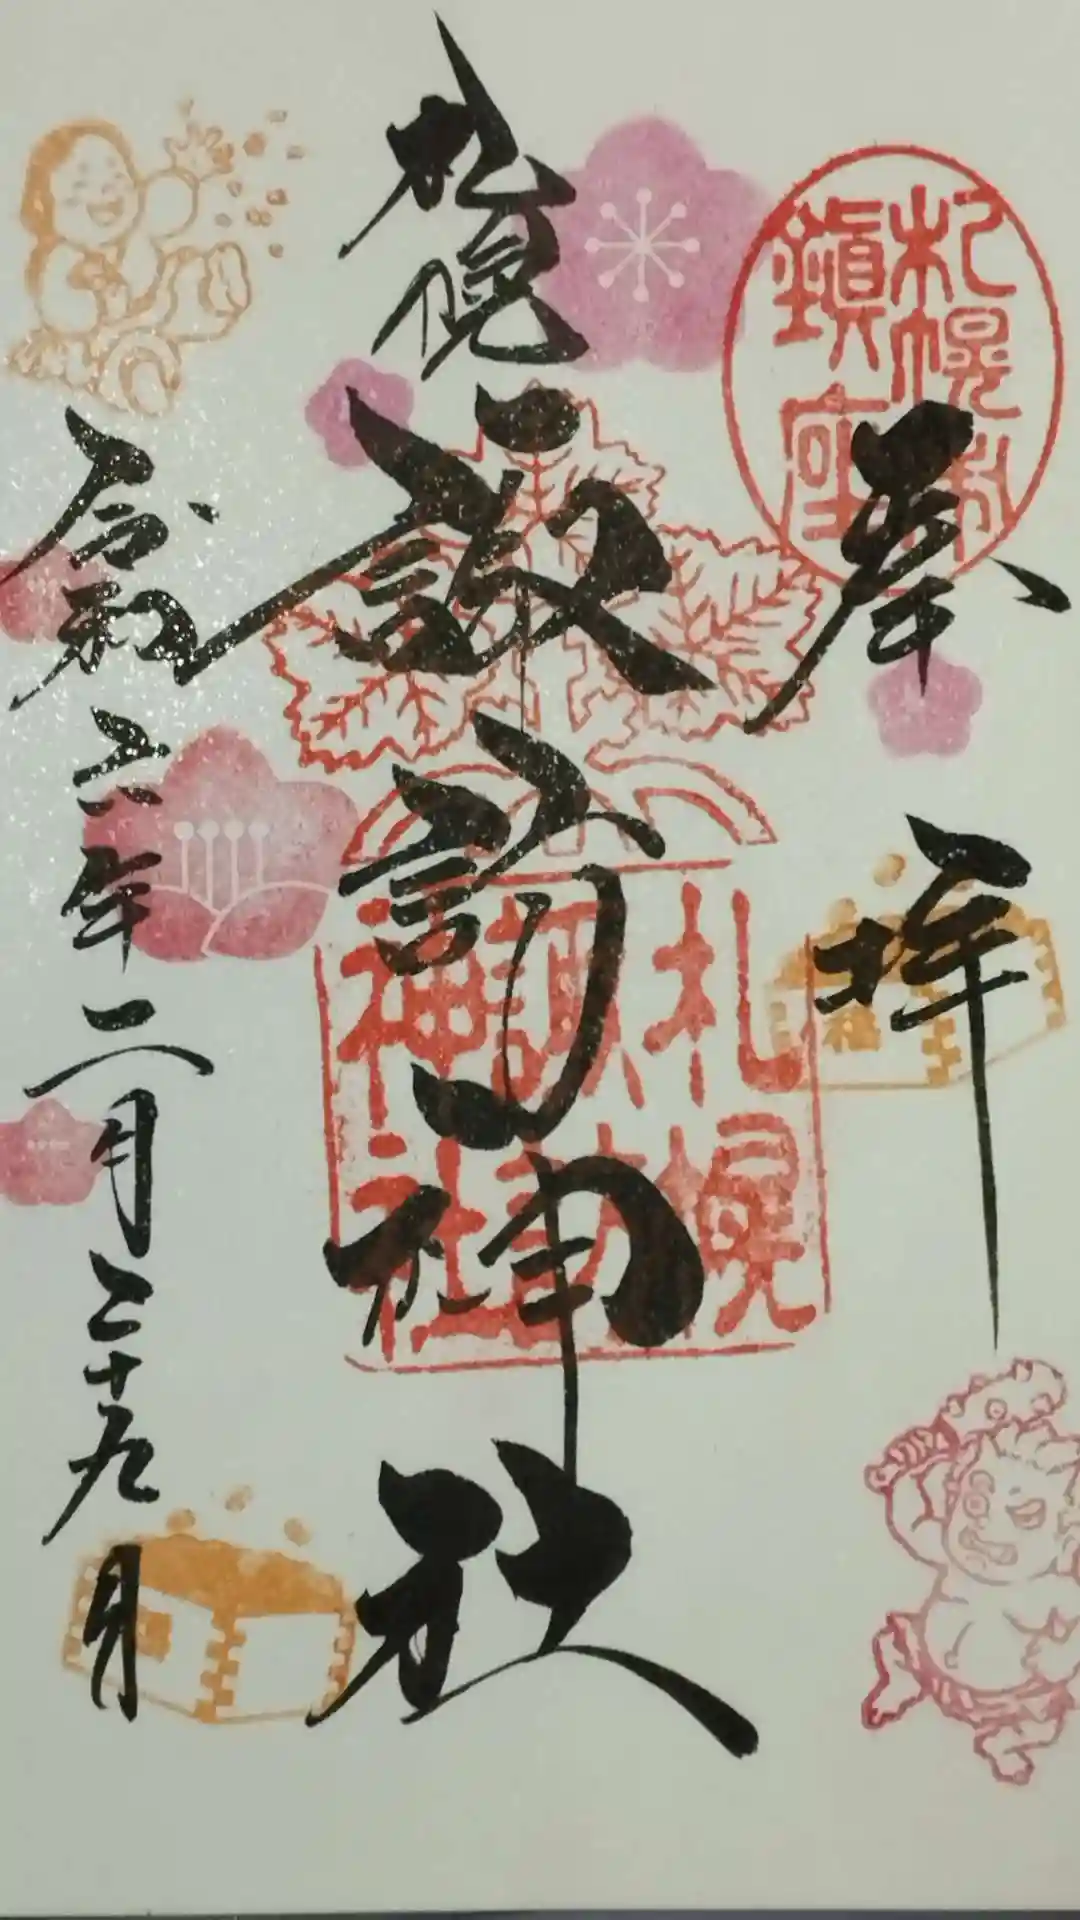 奉拝
札幌
諏訪神社
令和六年二月二十九日
札幌
鎮座
札幌
諏訪
神社
福